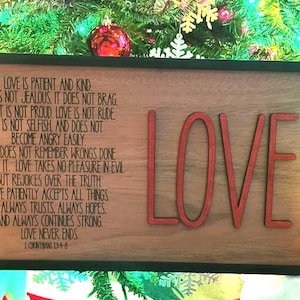 LOVE IS PATIENT AND KIND.
IS NOT JEALOUS, IT DOES NOT BRAG,
IT IS NOT PROUD. LOVE IS NOT RUDE,
IS NOT SELFISH, AND DOES NOT
BECOME ANGRY EASILY.
DOES NOT REMEMBER WRONGS DONE
IT. LOVE TAKES NO PLEASURE IN EVIL
BUT REJOICES OVER THE TRUTH.
PATIENTLY ACCEPTS ALL THINGS.
ALWAYS TRUSTS, ALWAYS HOPES,
AND ALWAYS CONTINUES STRONG.
LOVE NEVER ENDS.
1 CORINTHIANS 13:4-8
LOVE